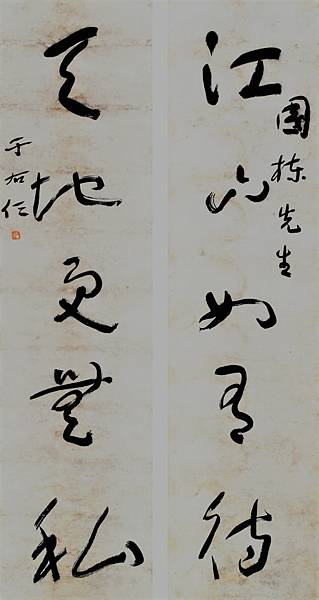 江山如有待
國棟先生
天地更無私
于右任